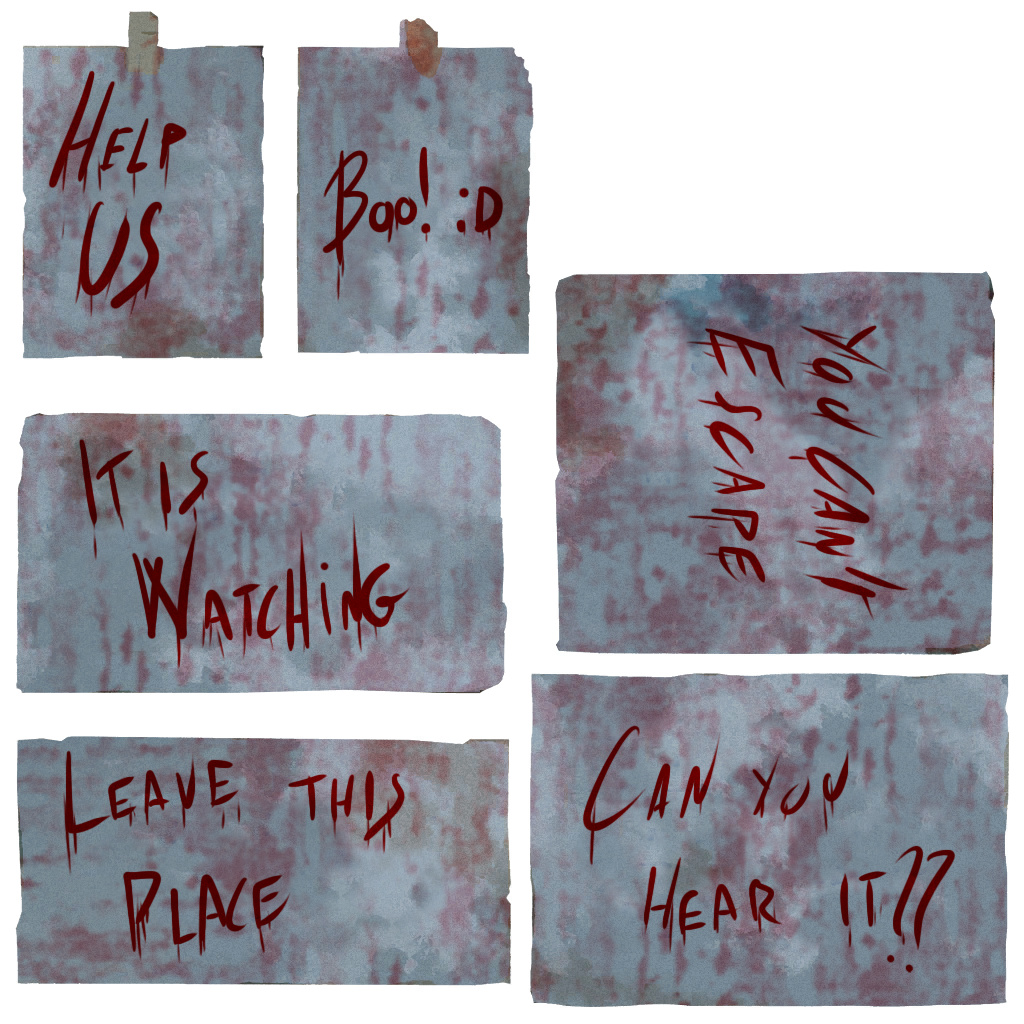 HELP
US
Boo! :D
You CAN't
ESCAPE
IT IS
WATCHiNG
LEAVE THIS
PLACE
CAN YOU
HEAR IT??